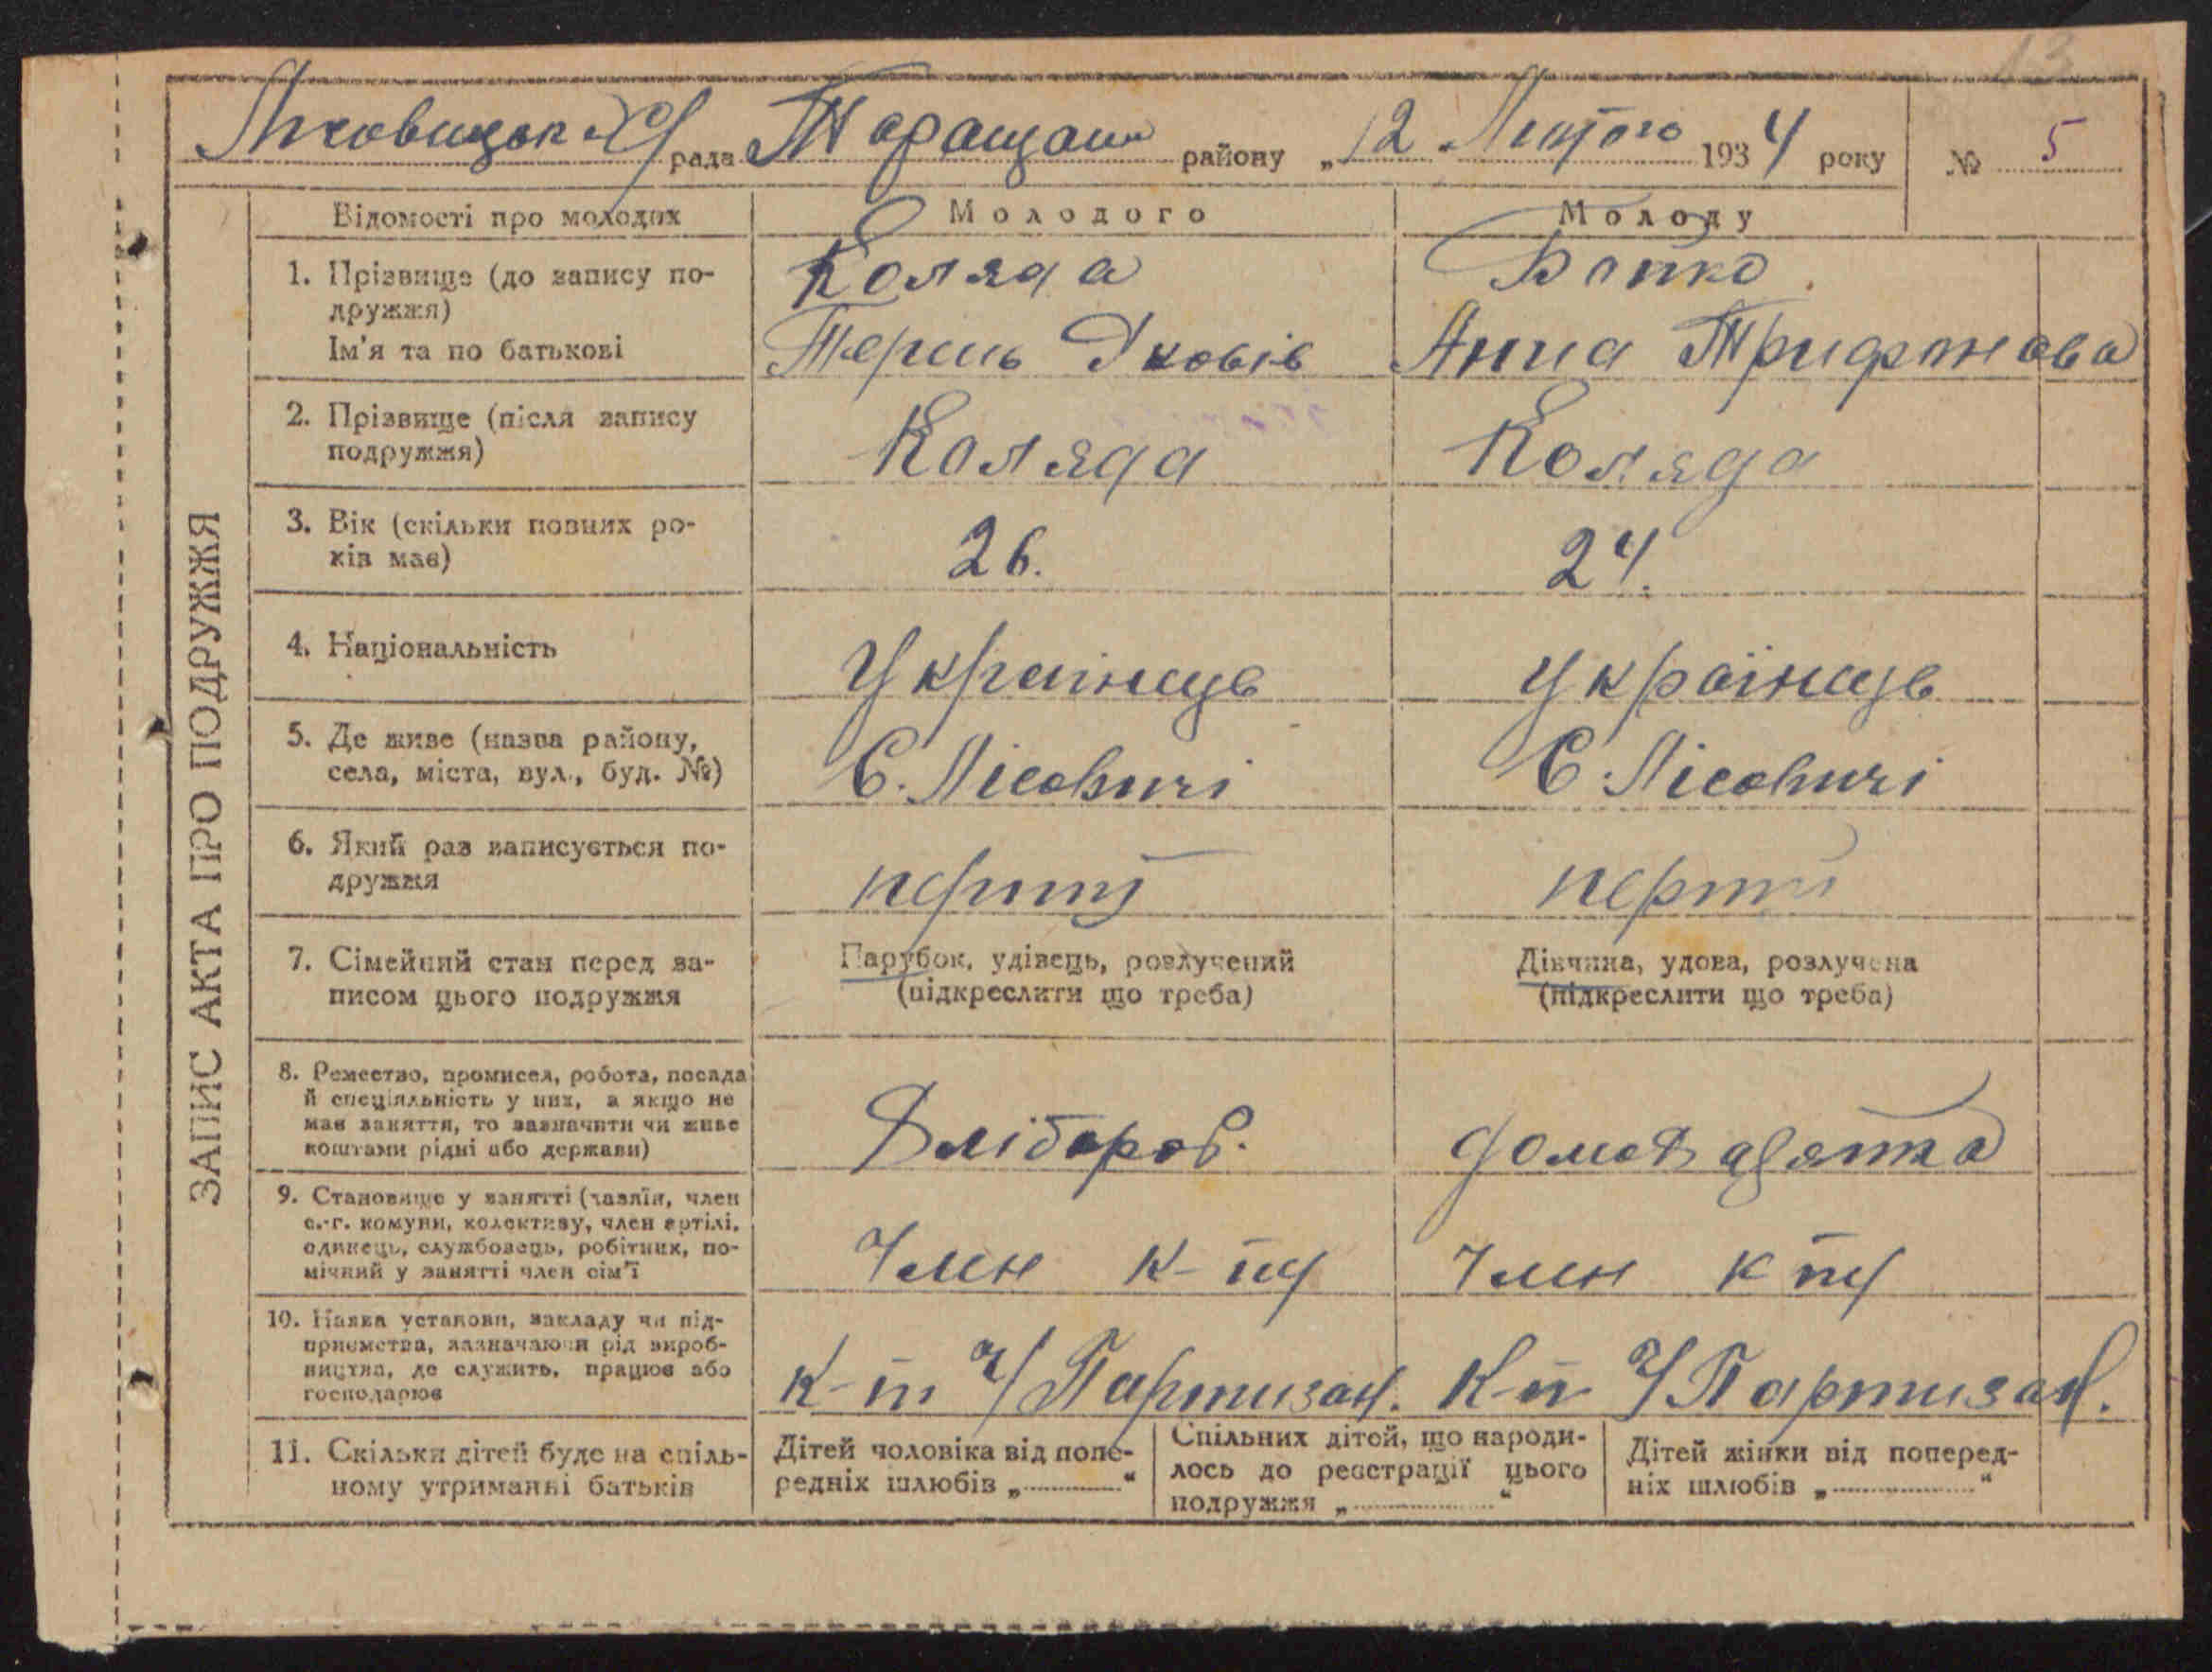 13
рада Таращан району „12 Лютого 1934 року № 5
ЗАПИС АКТА ПРО ПОДРУЖЖЯ
Відомості про молодих
Молодого
Молоду
1. Прізвище (до запису по-
дружжя)
Ім'я та по батькові
Коляда
Яковів
Бойко
Анна Трифонова
2. Прізвище (після запису
подружжя)
Коляда
Коляда
3. Вік (скільки повних ро-
ків має)
26.
24.
4. Національність
Українець
Українець
5. Де живе (назва району,
села, міста, вул., буд. №)
С. Лісовичі
С. Лісовичі
6. Який раз записується по-
дружжя
перший
перший
7. Сімейний стан перед за-
писом цього подружжя
Парубок, удівець, розлучений
(підкреслити що треба)
Дівчина, удова, розлучена
(підкреслити що треба)
8. Ремество, промисел, робота, посада
й спеціяльність у них, а якщо не
має заняття, то зазначити чи живе
коштами рідні або держави)
Хлібороб.
9. Становище у занятті (хазяїн, член
с.-г. комуни, колективу, член артілі,
одинець, службовець, робітник, по-
мічний у занятті член сім'ї
Член к-ту
Член к ту
10. Назва установи, закладу чи під-
приємства, зазначаючи рід вироб-
ництва, де служить, працює або
господарює
К-т Ч/Партизан.
К-т Ч/Партизан.
11. Скільки дітей буде на спіль-
ному утриманні батьків
Дітей чоловіка від попе-
редніх шлюбів „ “
Спільних дітей, що народи-
лось до реєстрації цього
подружжя „ “
Дітей жінки від поперед-
ніх шлюбів „ “